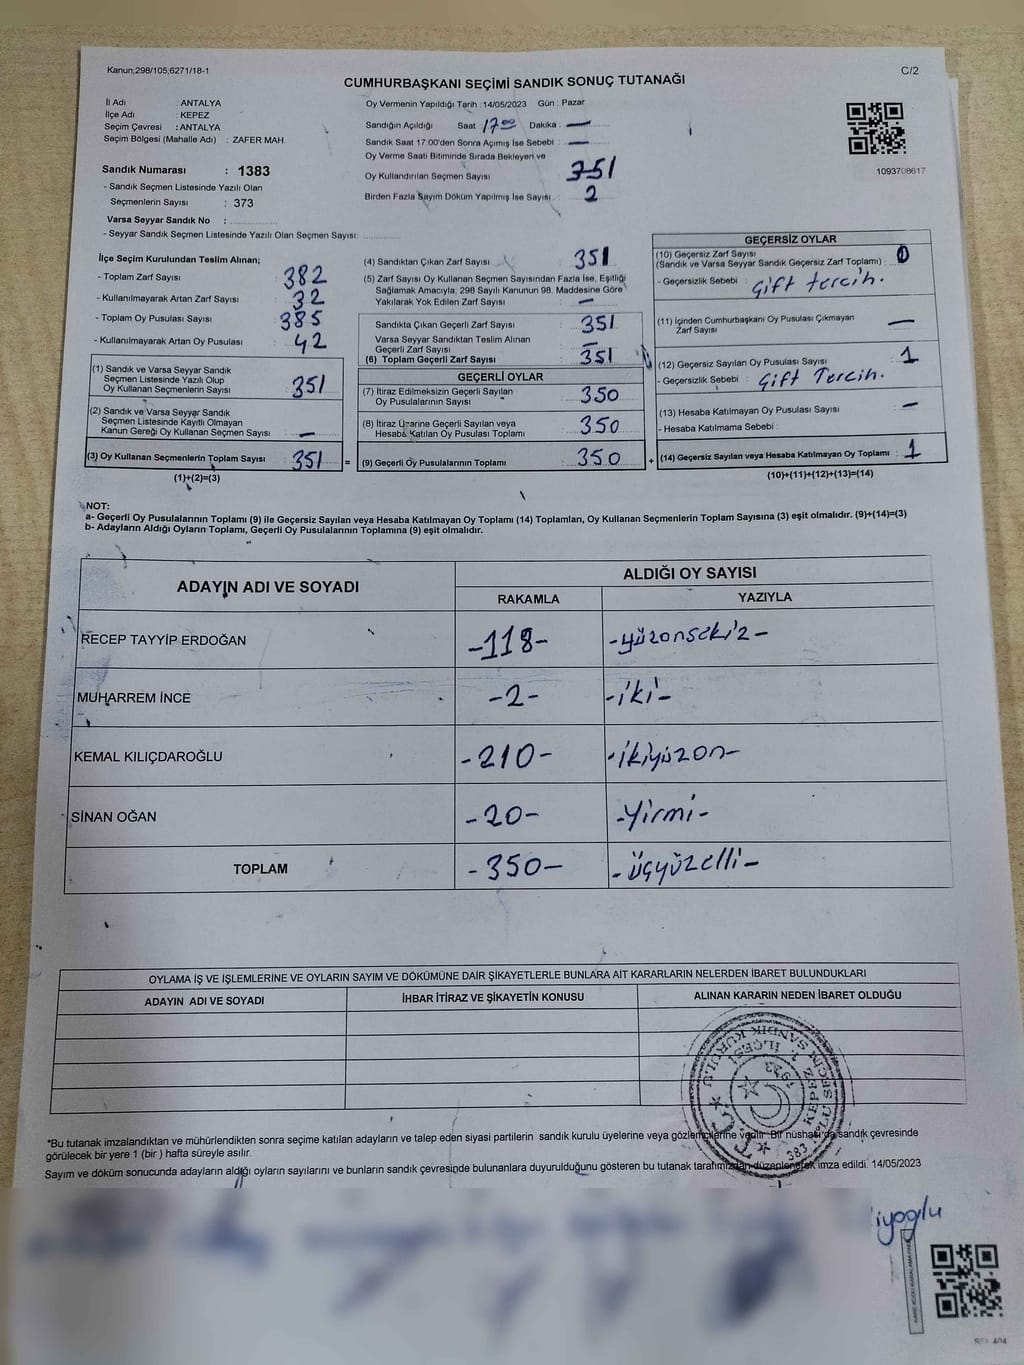 Kanun;298/105;6271/18-1
C/2
CUMHURBAŞKANI SEÇİMİ SANDIK SONUÇ TUTANAĞI
İl Adı : ANTALYA
İlçe Adı : KEPEZ
Seçim Çevresi : ANTALYA
Seçim Bölgesi (Mahalle Adı) : ZAFER MAH.
Oy Vermenin Yapıldığı Tarih : 14/05/2023 Gün : Pazar
Sandığın Açıldığı Saat 17:00 Dakika : —
Sandık Saat 17:00'den Sonra Açımış İse Sebebi : —
Oy Verme Saati Bitiminde Sırada Bekleyen ve
Oy Kullandırılan Seçmen Sayısı 351
Birden Fazla Sayım Döküm Yapılmış İse Sayısı : 2
1093708617
Sandık Numarası : 1383
- Sandık Seçmen Listesinde Yazılı Olan
Seçmenlerin Sayısı : 373
Varsa Seyyar Sandık No :
- Seyyar Sandık Seçmen Listesinde Yazılı Olan Seçmen Sayısı:
İlçe Seçim Kurulundan Teslim Alınan;
- Toplam Zarf Sayısı 382
- Kullanılmayarak Artan Zarf Sayısı : 32
- Toplam Oy Pusulası Sayısı 385
- Kullanılmayarak Artan Oy Pusulası 42
(1) Sandık ve Varsa Seyyar Sandık
Seçmen Listesinde Yazılı Olup
Oy Kullanan Seçmenlerin Sayısı : 351
(2) Sandık ve Varsa Seyyar Sandık
Seçmen Listesinde Kayıtlı Olmayan
Kanun Gereği Oy Kullanan Seçmen Sayısı : —
(3) Oy Kullanan Seçmenlerin Toplam Sayısı 351 =
(1)+(2)=(3)
(4) Sandıktan Çıkan Zarf Sayısı 351
(5) Zarf Sayısı Oy Kullanan Seçmen Sayısından Fazla İse, Eşitliği
Sağlamak Amacıyla, 298 Sayılı Kanunun 98. Maddesine Göre
Yakılarak Yok Edilen Zarf Sayısı : —
Sandıkta Çıkan Geçerli Zarf Sayısı : 351
Varsa Seyyar Sandıktan Teslim Alınan
Geçerli Zarf Sayısı : —
(6) Toplam Geçerli Zarf Sayısı 351
GEÇERLİ OYLAR
(7) İtiraz Edilmeksizin Geçerli Sayılan
Oy Pusulalarının Sayısı : 350
(8) İtiraz Üzerine Geçerli Sayılan veya
Hesaba Katılan Oy Pusulası Toplamı : 350
(9) Geçerli Oy Pusulalarının Toplamı : 350 +
GEÇERSİZ OYLAR
(10) Geçersiz Zarf Sayısı
(Sandık ve Varsa Seyyar Sandık Geçersiz Zarf Toplamı) : 0
- Geçersizlik Sebebi : Çift tercih.
(11) İçinden Cumhurbaşkanı Oy Pusulası Çıkmayan
Zarf Sayısı —
(12) Geçersiz Sayılan Oy Pusulası Sayısı : 1
- Geçersizlik Sebebi : Çift Tercih.
(13) Hesaba Katılmayan Oy Pusulası Sayısı : —
- Hesaba Katılmama Sebebi :
(14) Geçersiz Sayılan veya Hesaba Katılmayan Oy Toplamı : 1
(10)+(11)+(12)+(13)=(14)
NOT:
a- Geçerli Oy Pusulalarının Toplamı (9) ile Geçersiz Sayılan veya Hesaba Katılmayan Oy Toplamı (14) Toplamları, Oy Kullanan Seçmenlerin Toplam Sayısına (3) eşit olmalıdır. (9)+(14)=(3)
b- Adayların Aldığı Oyların Toplamı, Geçerli Oy Pusulalarının Toplamına (9) eşit olmalıdır.
ADAYIN ADI VE SOYADI
ALDIĞI OY SAYISI
RAKAMLA YAZIYLA
RECEP TAYYİP ERDOĞAN -118- -yüzonsekiz-
MUHARREM İNCE -2- -iki-
KEMAL KILIÇDAROĞLU -210- -ikiyüzon-
SİNAN OĞAN -20- -Yirmi-
TOPLAM -350- -üçyüzelli-
OYLAMA İŞ VE İŞLEMLERİNE VE OYLARIN SAYIM VE DÖKÜMÜNE DAİR ŞİKAYETLERLE BUNLARA AİT KARARLARIN NELERDEN İBARET BULUNDUKLARI
ADAYIN ADI VE SOYADI İHBAR İTİRAZ VE ŞİKAYETİN KONUSU ALINAN KARARIN NEDEN İBARET OLDUĞU
T.C.
KEPEZ
1. İLÇESİ
SANDIK KURULU
1383
*Bu tutanak imzalandıktan ve mühürlendikten sonra seçime katılan adayların ve talep eden siyasi partilerin sandık kurulu üyelerine veya gözlemcilerine verilir. Bir nüshası da sandık çevresinde
görülecek bir yere 1 (bir ) hafta süreyle asılır.
Sayım ve döküm sonucunda adayların aldığı oyların sayılarını ve bunların sandık çevresinde bulunanlara duyurulduğunu gösteren bu tutanak tarafımızdan düzenlenerek imza edildi. 14/05/2023
iyoglu